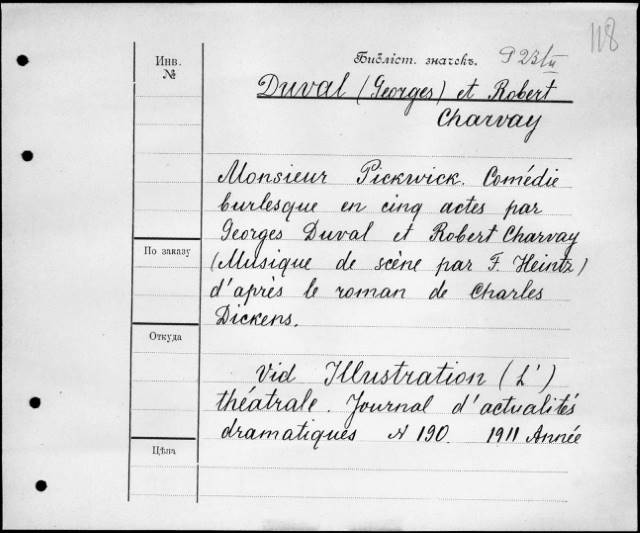 118
Инв.
№
Библіот. значекъ.
Duval (Georges) et Robert
Charvay
Monsieur Pickwick. Comédie
burlesque en cinq actes par
Georges Duval et Robert Charvay
(Musique de scène par F. Heintz)
d'après le roman de Charles
Dickens.
По заказу
Откуда
Цѣна
Vid Illustration (L')
théatrale. Journal d'actualités
dramatiques N 190. 1911 Année